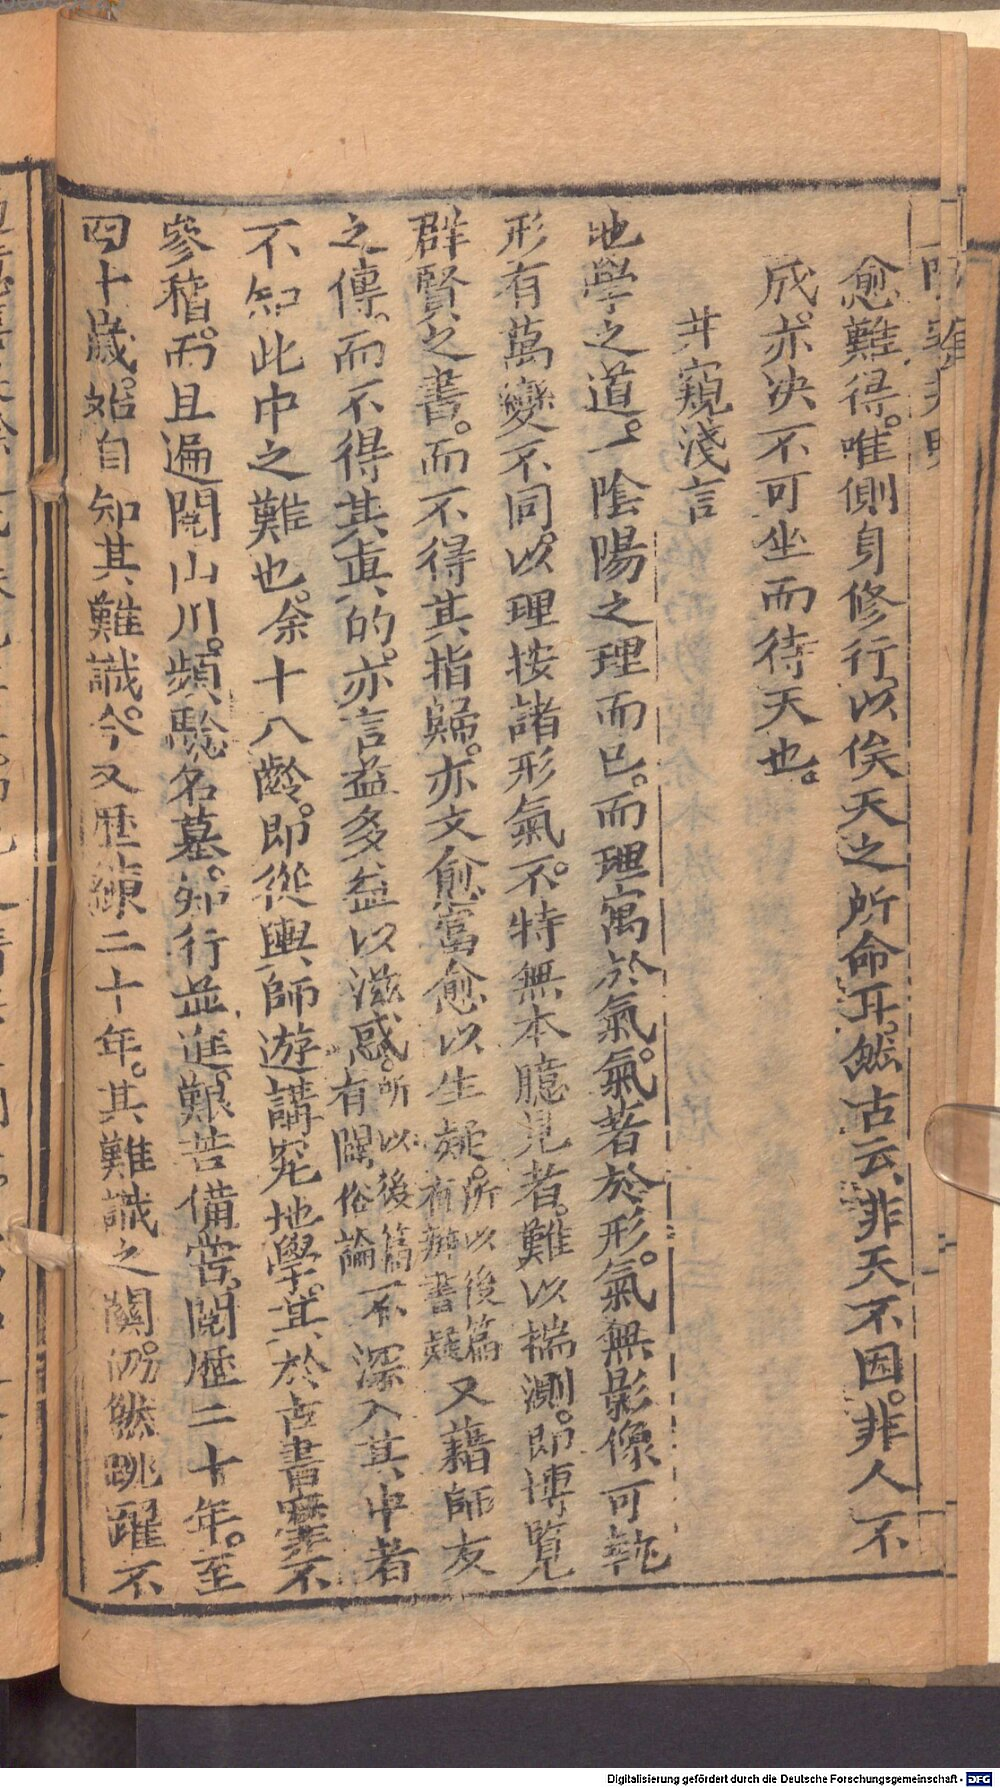 愈難得。唯側身修行以俟天之所命耳。然古云、非天不因。非人不
成。亦决不可坐而待天也。
井窺淺言
地學之道。一陰陽之理而已。而理寓於氣。氣著於形。氣無影像可執
形有萬變不同。以理按諸形氣。不特無本臆見者。難以揣測。即博覽
群賢之書。而不得其指歸。亦文愈富愈以生疑。所以後篇有辨書疑又藉師友
之傳。而不得其真的。亦言益多益以滋惑。所以後篇有闢俗論不深入其中者
不知此中之難也。余十八齡。即從輿師遊講究地學。其於古書寧不
參稽。而且遍閱山川。頻驗名墓。知行並進。艱苦備嘗。閱歷二十年。至
四十歲。始自知其難識。今又歷練二十年。其難識之關。仍然跳躍不
Digitalisierung gefördert durch die Deutsche Forschungsgemeinschaft - DFG